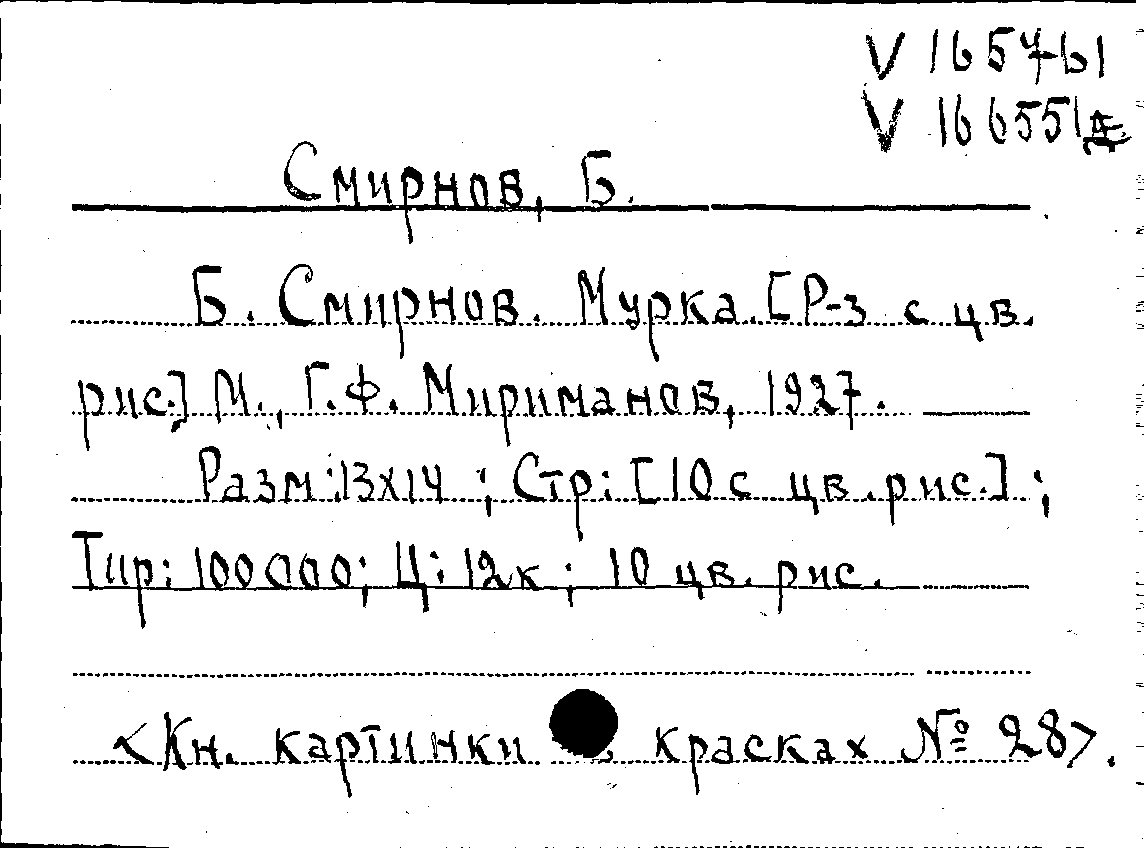 V 165761
V 166551
Смирнов, Б.
Б. Смирнов. Мурка. [Р-з с цв.
рис.] М., Г.Ф. Мириманов, 1927.
Разм: 13x14 ; Стр: [10 с цв. рис.] ;
Тир: 100000; Ц: 12к ; 10 цв. рис.
<Кн. картинки красках № 28>.